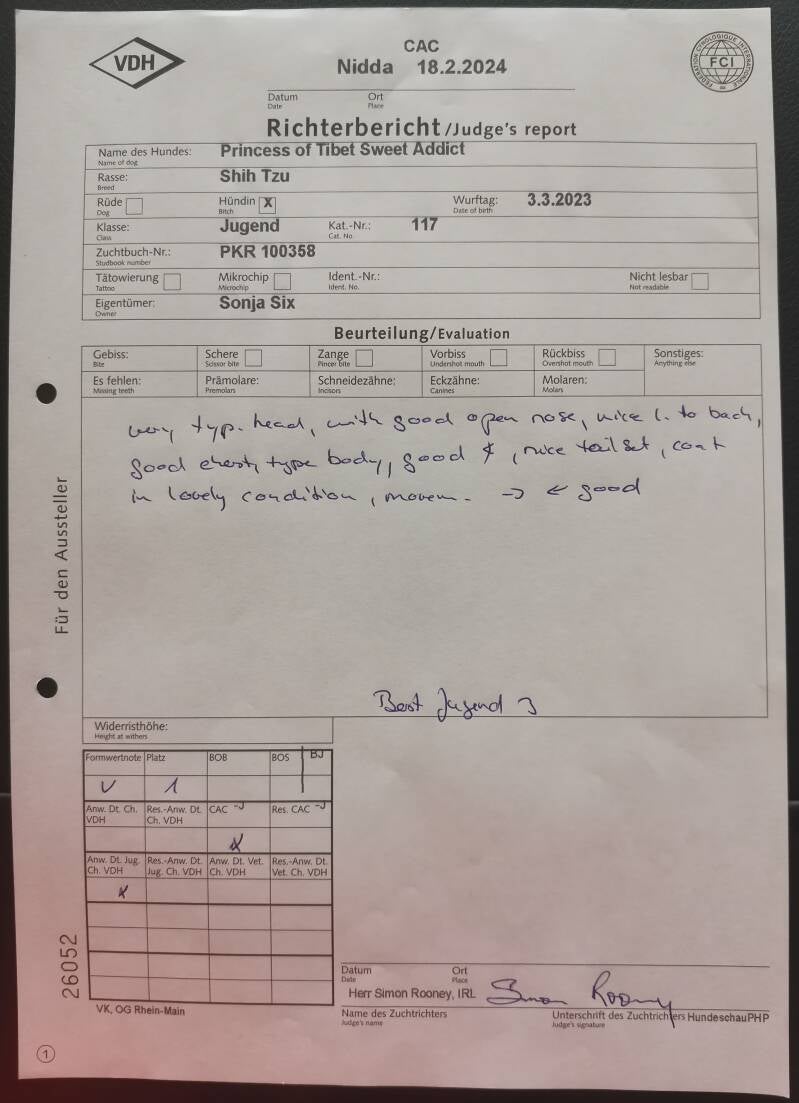 VDH
CAC
Nidda 18.2.2024
FÉDÉRATION CYNOLOGIQUE INTERNATIONALE
FCI
Datum Ort
Date Place
Richterbericht/Judge's report
Name des Hundes: Princess of Tibet Sweet Addict
Name of dog
Rasse: Shih Tzu
Breed
Rüde Hündin X Wurftag: 3.3.2023
Dog Bitch Date of birth
Klasse: Jugend Kat.-Nr.: 117
Class Cat. No.
Zuchtbuch-Nr.: PKR 100358
Studbook number
Tätowierung Mikrochip Ident.-Nr.: Nicht lesbar
Tattoo Microchip Ident. No. Not readable
Eigentümer: Sonja Six
Owner
Beurteilung/Evaluation
Gebiss: Schere Zange Vorbiss Rückbiss Sonstiges:
Bite Scissor bite Pincer bite Undershot mouth Overshot mouth Anything else
Es fehlen: Prämolare: Schneidezähne: Eckzähne: Molaren:
Missing teeth Premolars Incisors Canines Molars
very typ. head, with good open nose, nice l. to back,
good chest, type body, good , nice tail set, coat
in lovely condition, movem. → ← good
Best Jugend
Für den Aussteller
Widerristhöhe:
Height at withers
Formwertnote Platz BOB BOS BJ
V 1
Anw. Dt. Ch. VDH Res.-Anw. Dt. Ch. VDH CAC -J Res. CAC -J
x
Anw. Dt. Jug. Ch. VDH Res.-Anw. Dt. Jug. Ch. VDH Anw. Dt. Vet. Ch. VDH Res.-Anw. Dt. Vet. Ch. VDH
x
26052
VK, OG Rhein-Main
Datum Ort
Date Place
Herr Simon Rooney, IRL Simon Rooney
Name des Zuchtrichters Unterschrift des Zuchtrichters HundeschauPHP
Judge's name Judge's signature
1